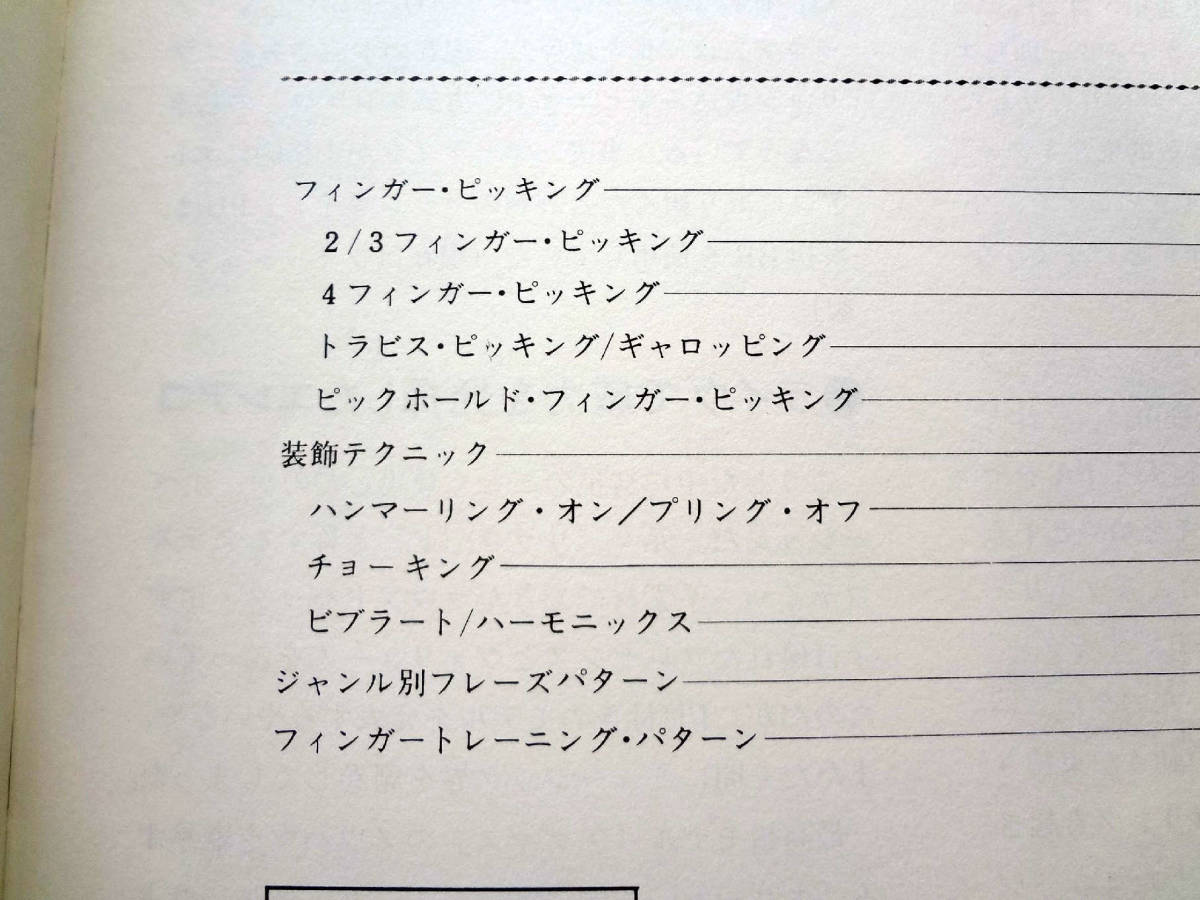 フィンガー・ピッキング
2/3フィンガー・ピッキング
4フィンガー・ピッキング
トラビス・ピッキング/ギャロッピング
ピックホールド・フィンガー・ピッキング
装飾テクニック
ハンマーリング・オン/プリング・オフ
チョーキング
ビブラート/ハーモニックス
ジャンル別フレーズパターン
フィンガートレーニング・パターン